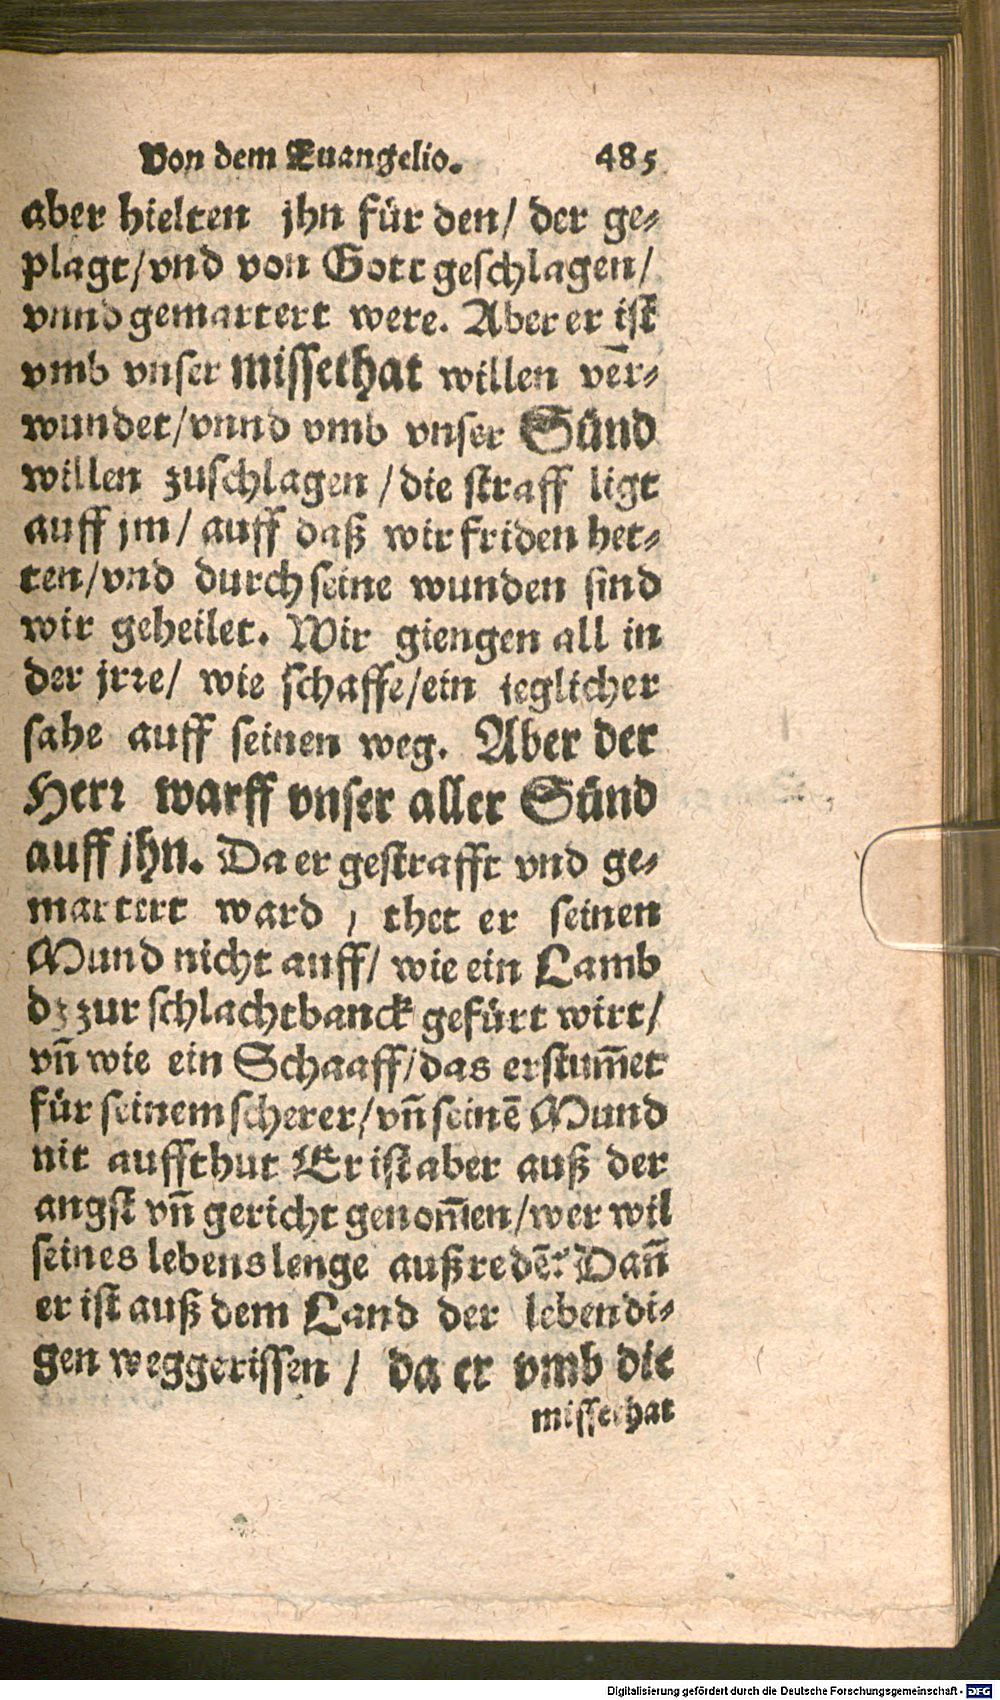 Von dem Euangelio. 485
aber hielten jhn für den/ der ge⸗
plagt/vnd von Gott geschlagen/
vnnd gemartert were. Aber er ist
vmb vnser missethat willen ver⸗
wundet/vnnd vmb vnser Sünd
willen zuschlagen /die straff ligt
auff jm/ auff daß wir friden het⸗
ten/vnd durch seine wunden sind
wir geheilet. Wir giengen all in
der jrre/ wie schaffe/ein ieglicher
sahe auff seinen weg. Aber der
Herr warff vnser aller Sünd
auff jhn. Da er gestrafft vnd ge⸗
martert ward / thet er seinen
Mund nicht auff/ wie ein Lamb
dz zur schlachtbanck gefürt wirt/
vñ wie ein Schaaff/das erstum̃et
für seinem scherer/vñ seinē Mund
nit auffthut Er ist aber auß der
angst vñ gericht genom̃en/wer wil
seines lebens lenge außredē? Dañ
er ist auß dem Land der lebendi⸗
gen weggerissen / da er vmb die
missethat
Digitalisierung gefördert durch die Deutsche Forschungsgemeinschaft - DFG